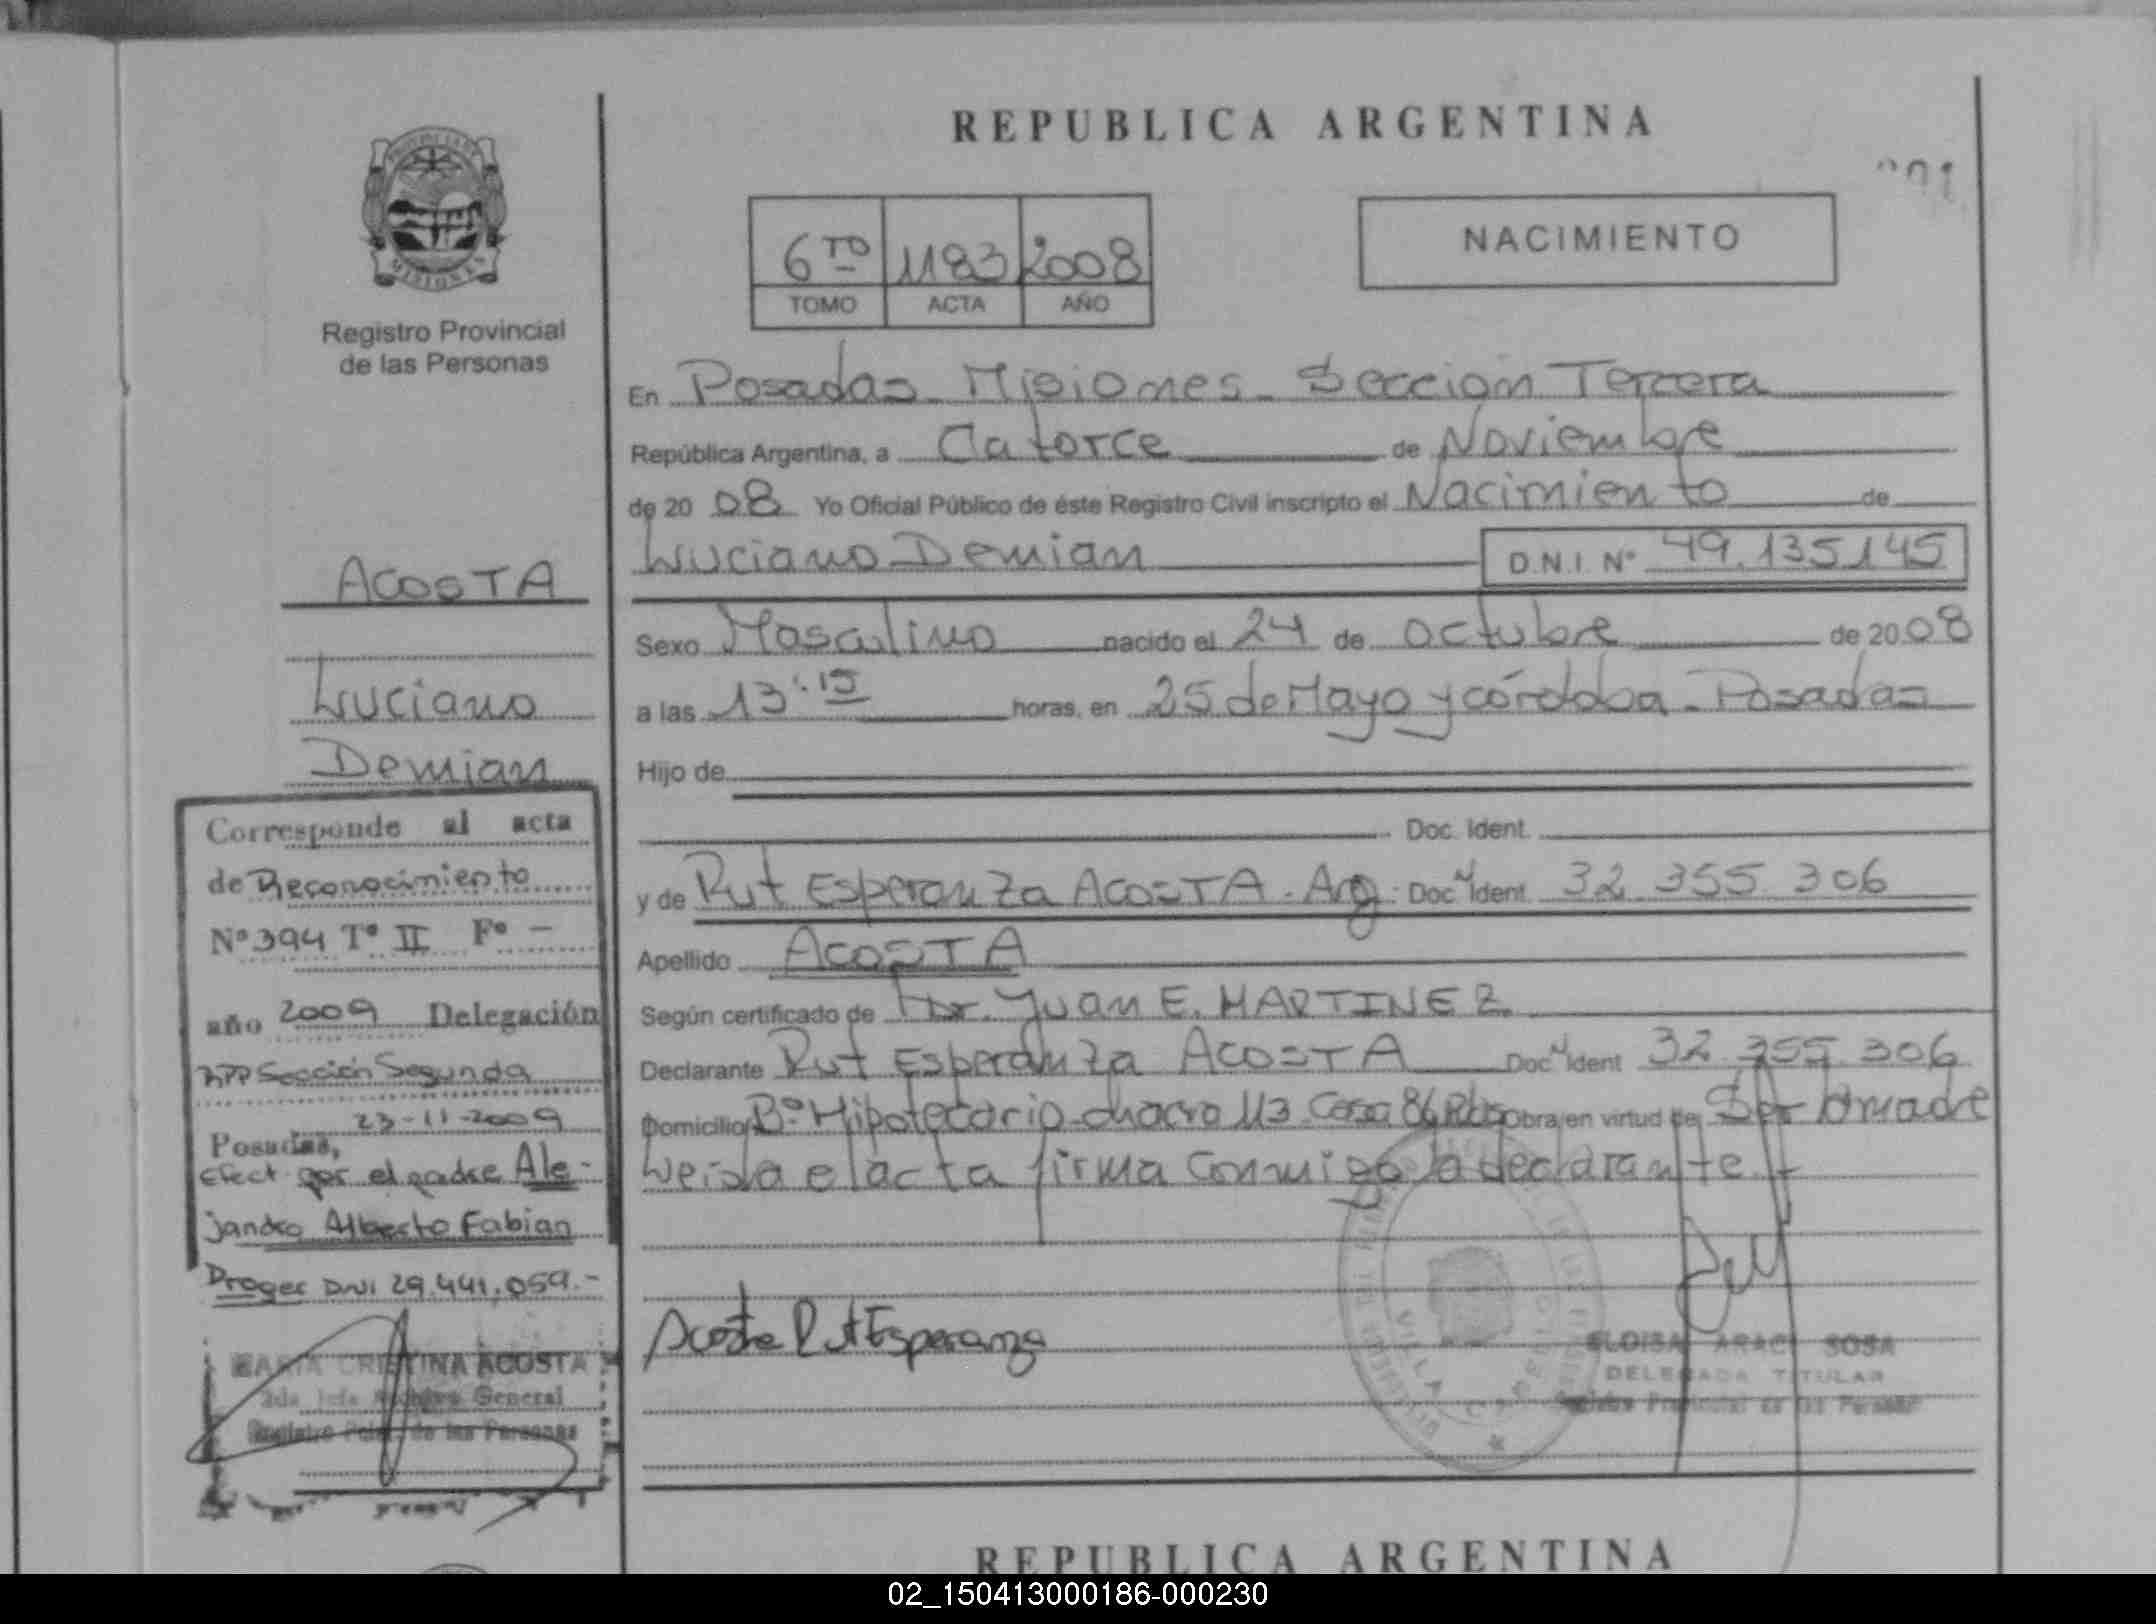 REPUBLICA ARGENTINA
PROVINCIA DE
MISIONES
Registro Provincial
de las Personas
6TO 1183 2008
TOMO ACTA AÑO
NACIMIENTO
En Posadas Misiones Sección Tercera
República Argentina, a Catorce de Noviembre
de 20 08 Yo Oficial Público de éste Registro Civil inscripto el Nacimiento de
Luciano Demian D.N.I. Nº 49.135.145
Sexo Masculino nacido el 24 de octubre de 20 08
a las 13:15 horas, en 25 de Mayo y córdoba - Posadas
Hijo de
Doc. Ident.
y de Rut Esperanza ACOSTA - Arg. Doc N Ident. 32.355.306
Apellido ACOSTA
Según certificado de Dr. Juan E. MARTINEZ
Declarante Rut Esperanza ACOSTA Doc N Ident 32.355.306
Domicilio Bº Hipotecario - chacra 113 Casa 86 Pdas Obra en virtud de Ser la madre
Leida el acta firma conmigo la declarante
Acosta Rut Esperanza
ELOISA ARACI SOSA
DELEGADA TITULAR
Registro Provincial de las Personas
ACOSTA
Luciano
Demian
Corresponde al acta
de Reconocimiento
Nº 394 Tº II Fº -
año 2009 Delegación
RPP Sección Segunda
Posadas, 23-11-2009
Efect. por el padre Ale-
jandro Alberto Fabian
Droger DNI 29.441.059.-
MARIA CRISTINA ACOSTA
Archivo General
Registro Pcial. de las Personas
REPUBLICA ARGENTINA
02_150413000186-000230